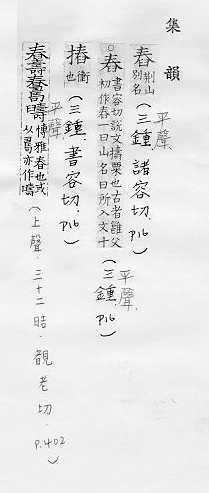 集韻
舂 荆山別名（三鍾．諸容切．P16 平聲
○舂 書容切說文擣粟也古者雝父初作舂一曰山名日所入文十（三鍾．P16）平聲
摏 衝也（三鍾．書容切．P16）平聲
博雅舂也或从咼亦作嚋（上聲．三十二晧．覩老切．P.402.）